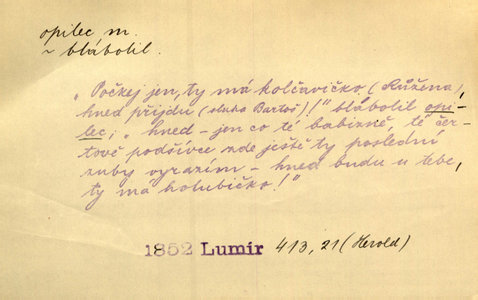 opilec m.
~ blábolil.
„Počkej jen, ty má kolčavičko (Růžena),
hned přijdu (sluha Bartoš)!“ blábolil opi-
lec; „hned – jen co té babizně, té čer-
tově podšívce zde ještě ty poslední
zuby vyrazím – hned budu u tebe,
ty má holubičko!“
1852 Lumír 413,21 (Herold)